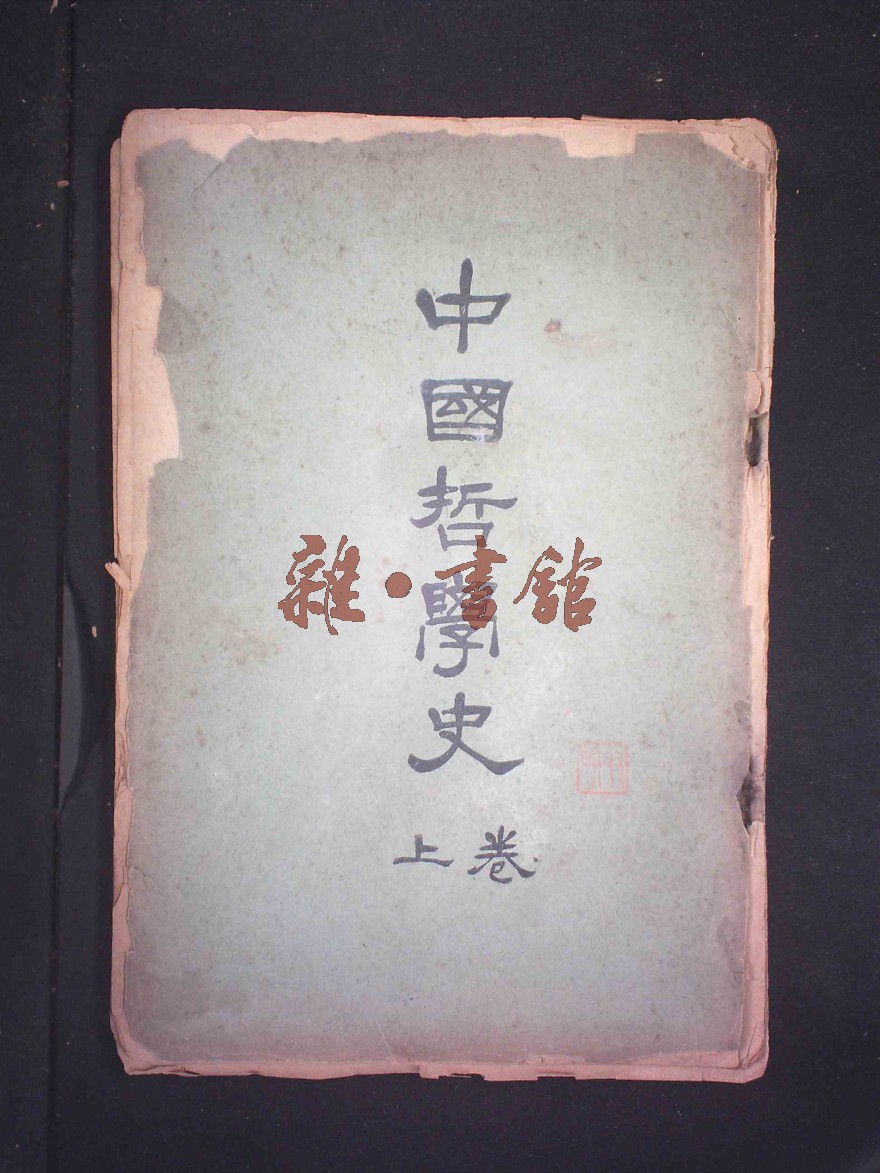 中國哲學史
卷上
雜·書館